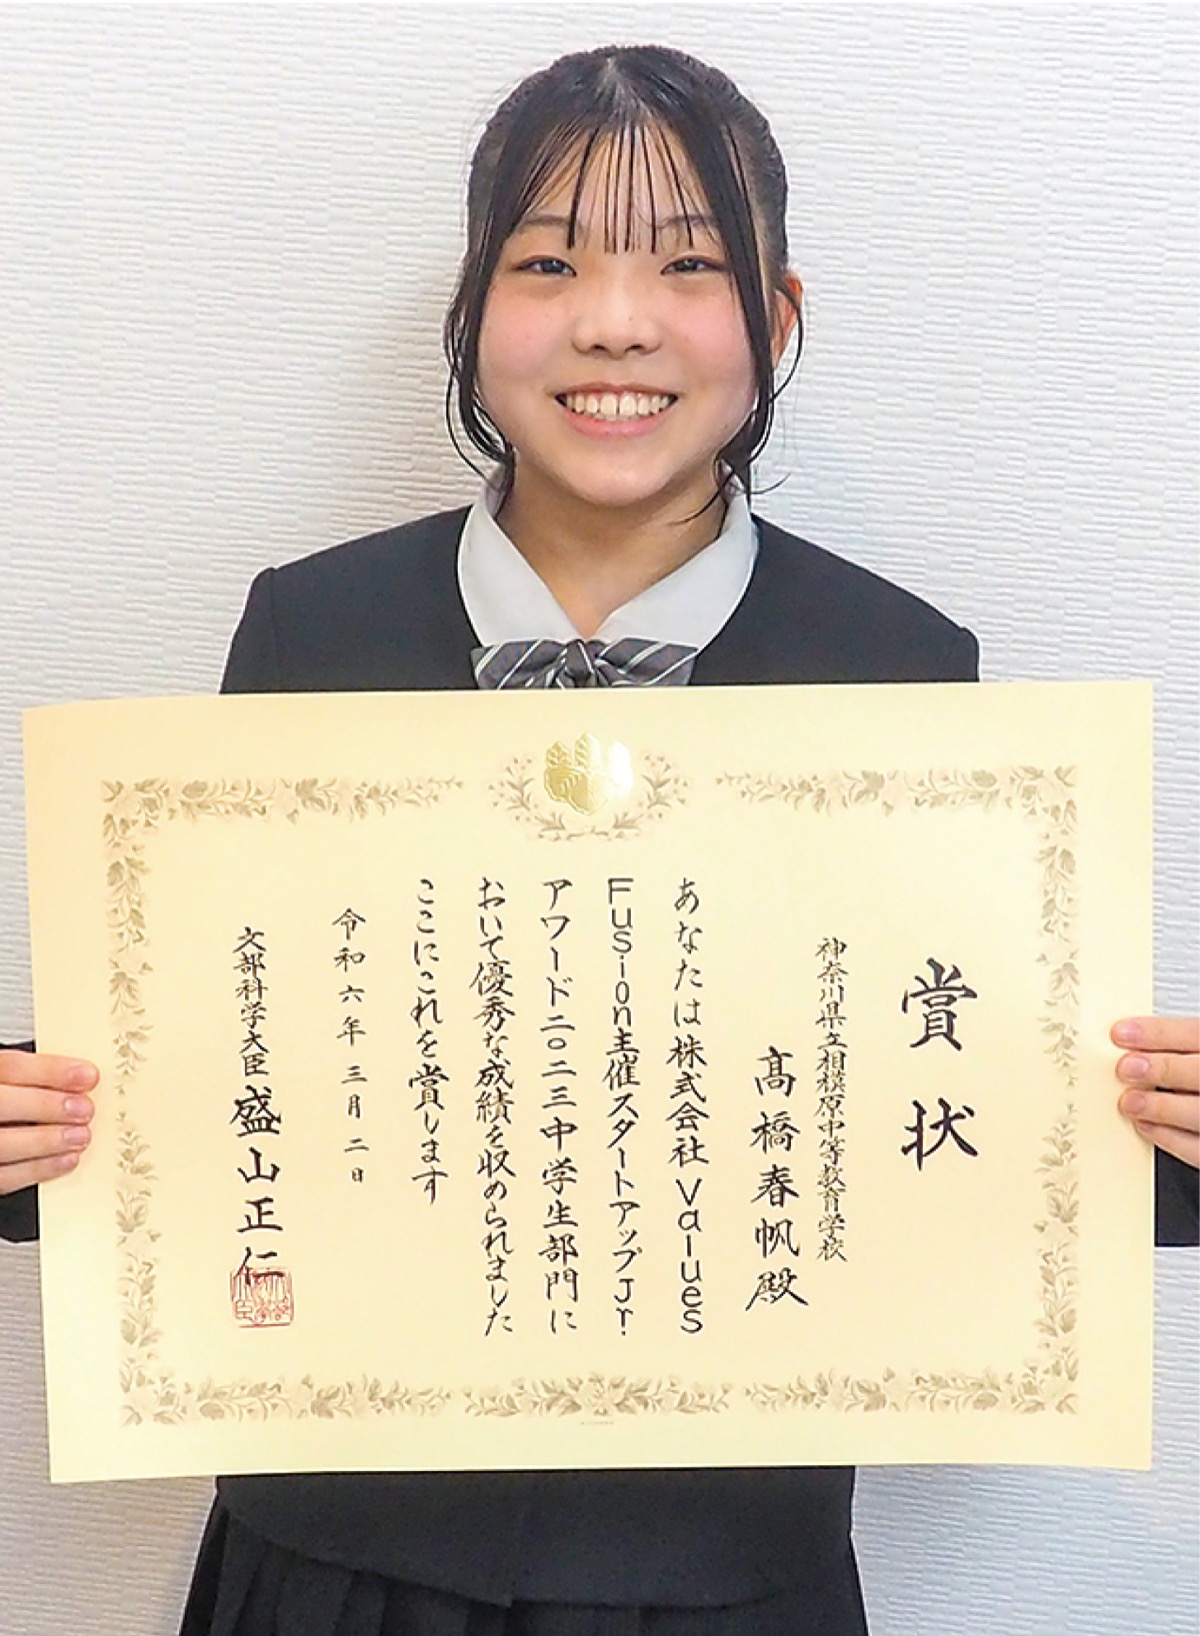 賞状
神奈川県立相模原中等教育学校
髙橋春帆殿
あなたは株式会社Values
Fusion主催スタートアップJr.
アワード二〇二三中学生部門に
おいて優秀な成績を収められました
ここにこれを賞します
令和六年三月二日
文部科学大臣 盛山正仁